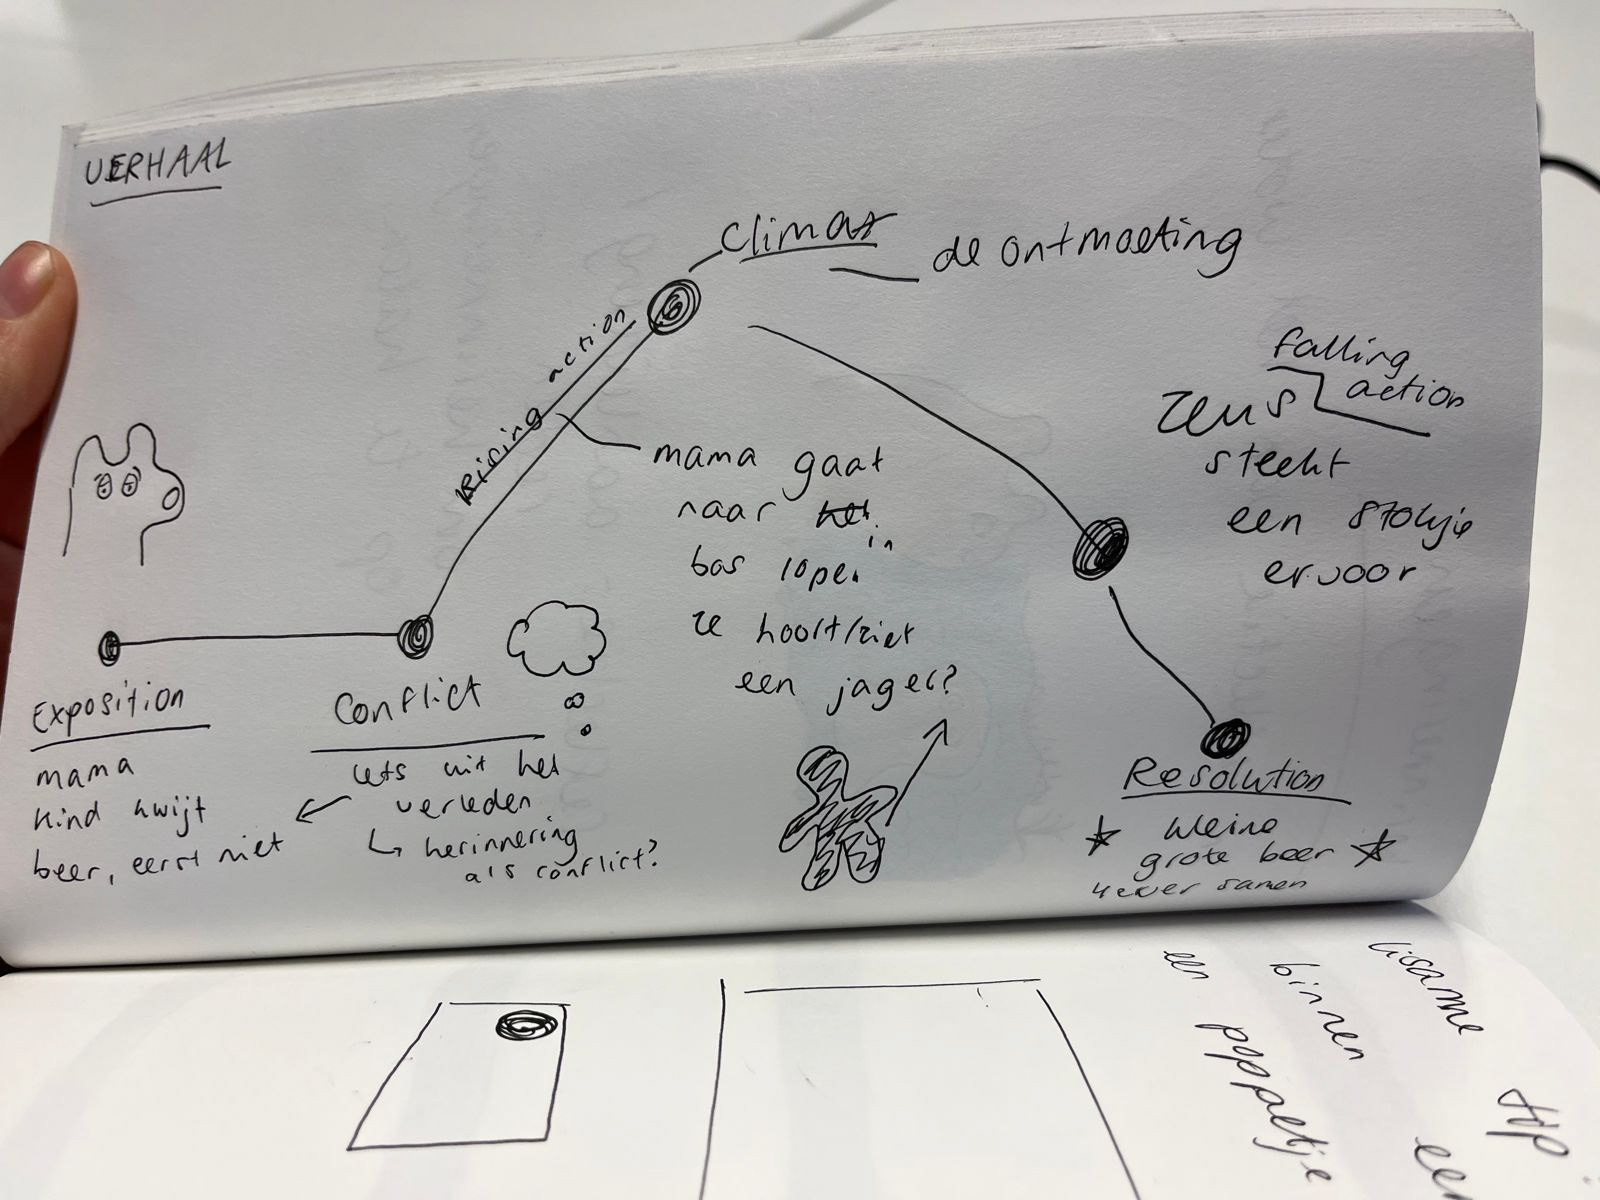 VERHAAL
Climax
de ontmoeting
Rising action
falling
action
zeus
steekt
een stokje
ervoor
mama gaat
naar het
bos in lopen
ze hoort/ziet
een jager?
Exposition
mama
kind kwijt
beer, eerst niet
Conflict
iets uit het
verleden
↳ herinnering
als conflict?
Resolution
★ kleine ★
grote beer
4ever samen
lisanne
binnen
een poppetje
tip
een